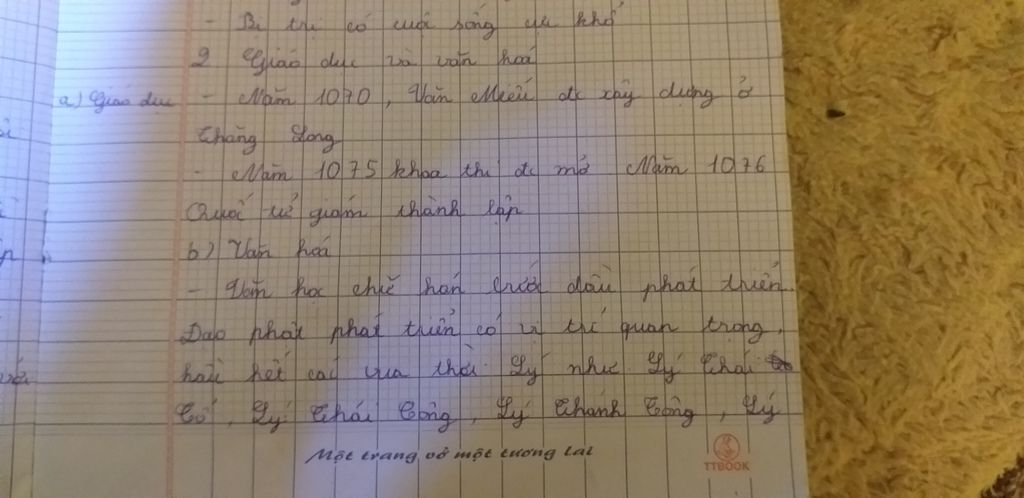 - Bị trị có cuộc sống
2 Giáo dục và văn hoá
a) Giáo dục - Năm 1070, Văn Miếu đc xây dựng ở
Thăng Long
- Năm 1075 khoa thi đc mở Năm 1076
Quốc tử giám thành lập
b) Văn hoá
- Văn học chữ hán bước đầu phát triển.
Đạo phật phát triển có vị trí quan trọng,
hầu hết các vua thời Lý như Lý Thái
Tổ, Lý Thái Tông, Lý Thánh Tông, Lý
Một trang vở một tương lai
TTBOOK